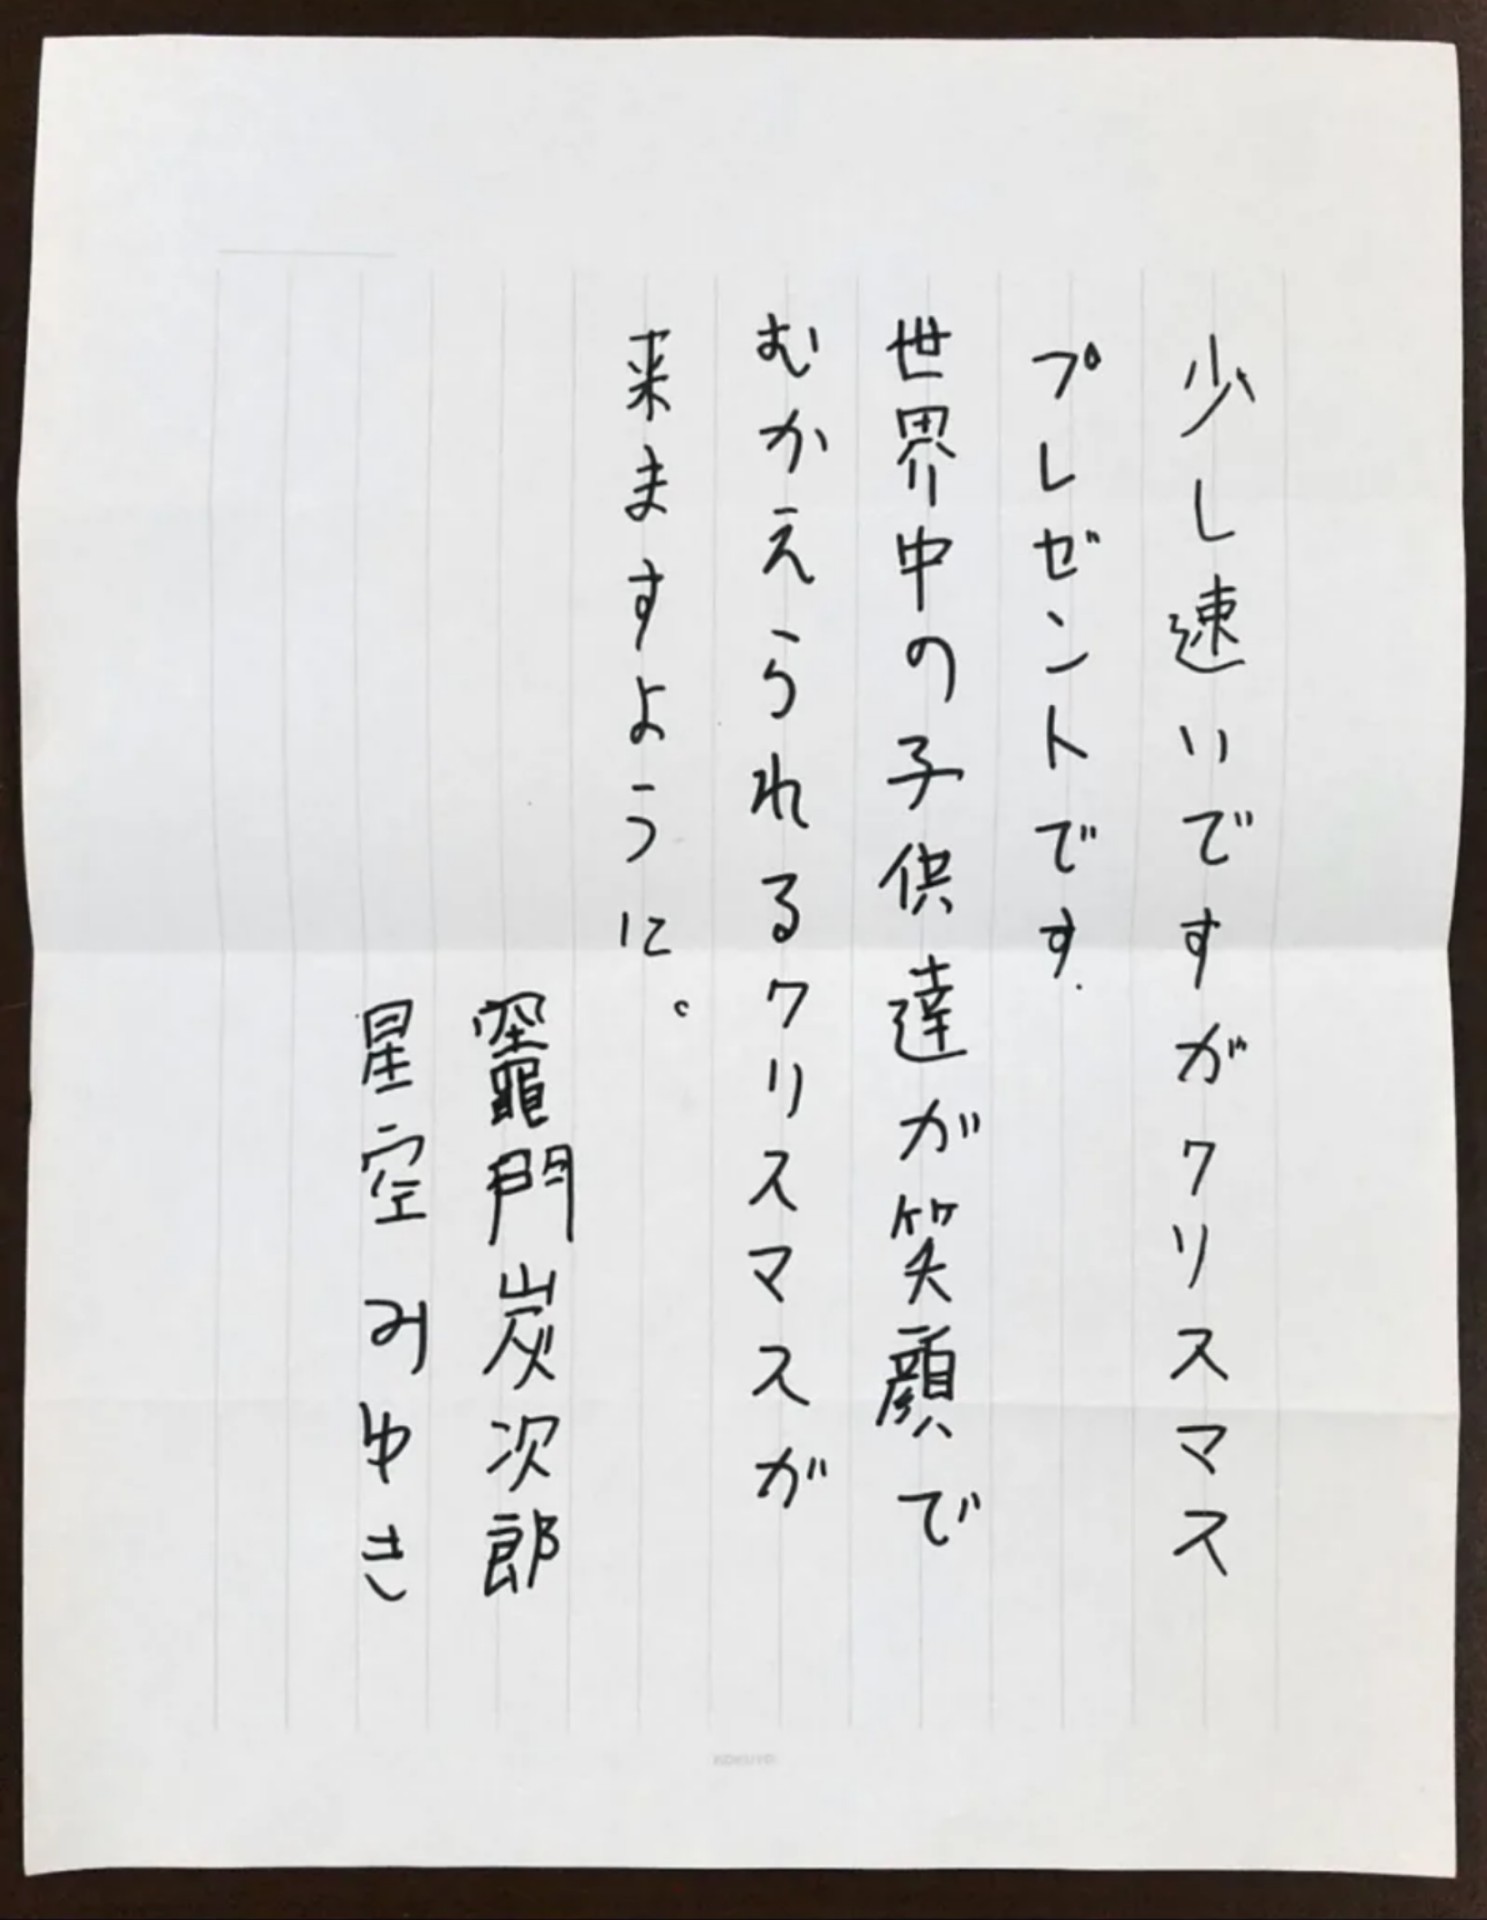 少し速いですがクリスマス
プレゼントです.
世界中の子供達が笑顔で
むかえられるクリスマスが
来ますように。
竈門炭次郎
星空みゆき
KOKUYO